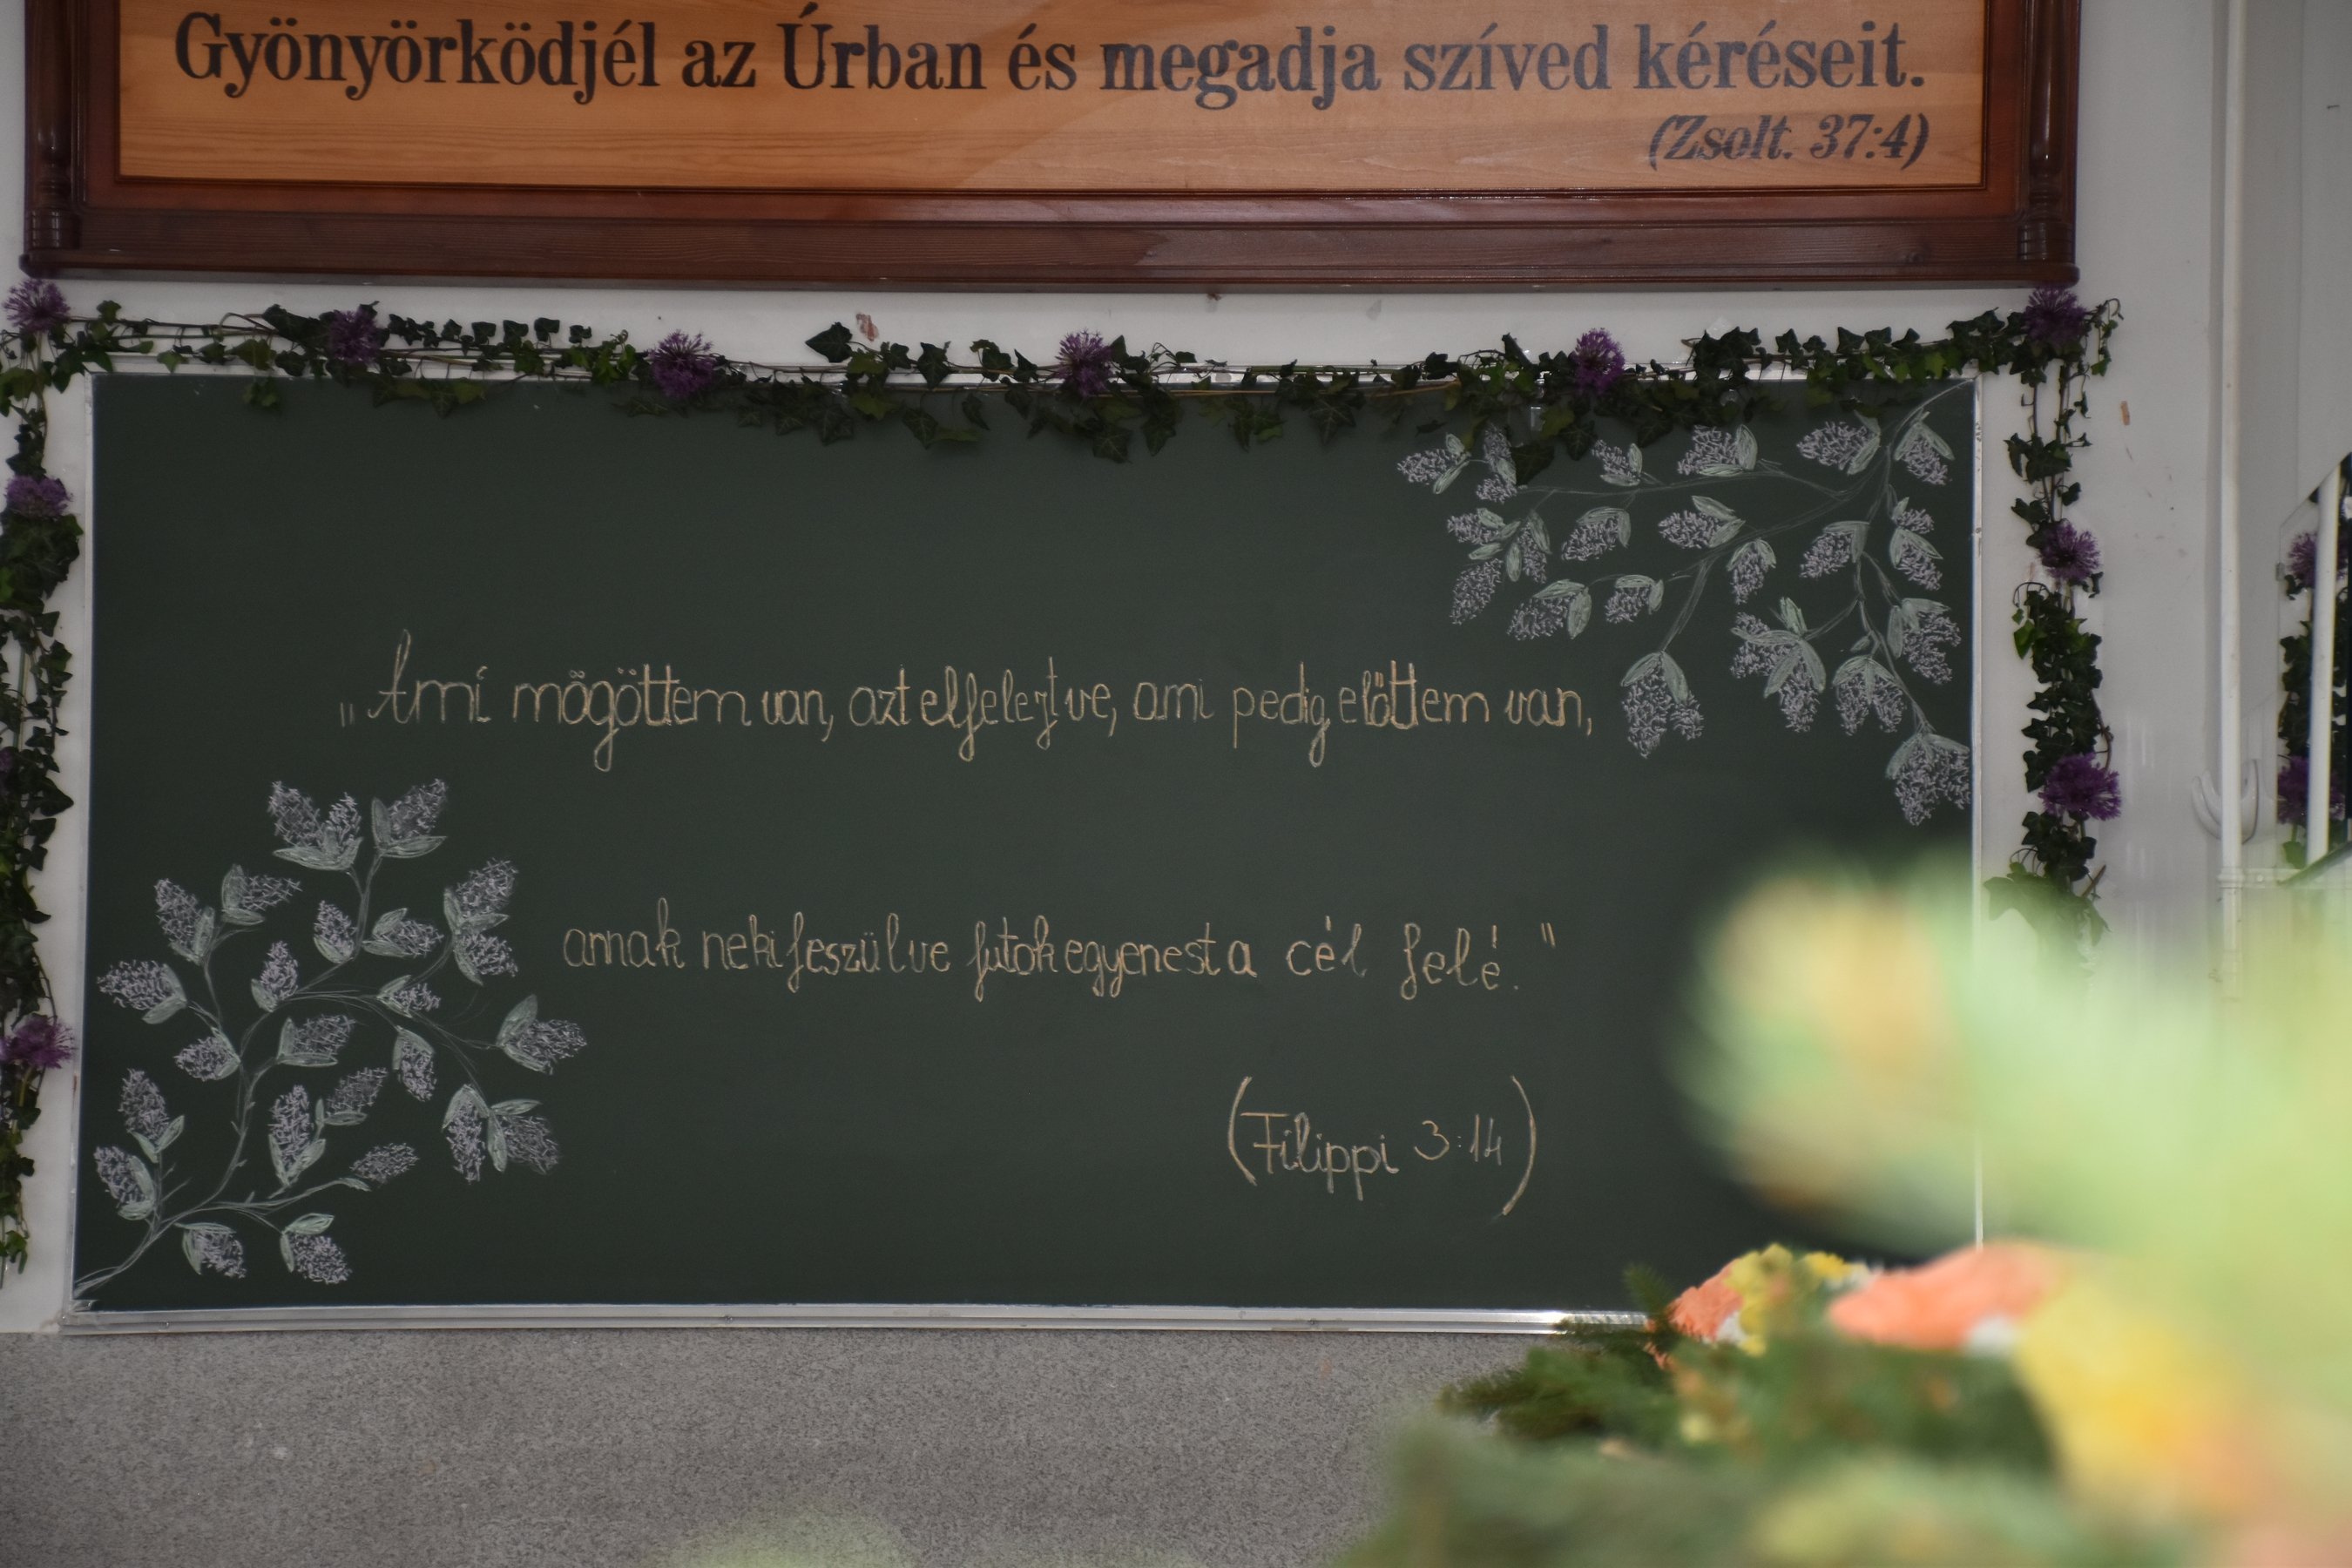 Gyönyörködjél az Úrban és megadja szíved kéréseit.
(Zsolt. 37:4)
„Ami mögöttem van, azt elfelejtve, ami pedig előttem van,
annak nekifeszülve futok egyenest a cél felé."
(Filippi 3:14)